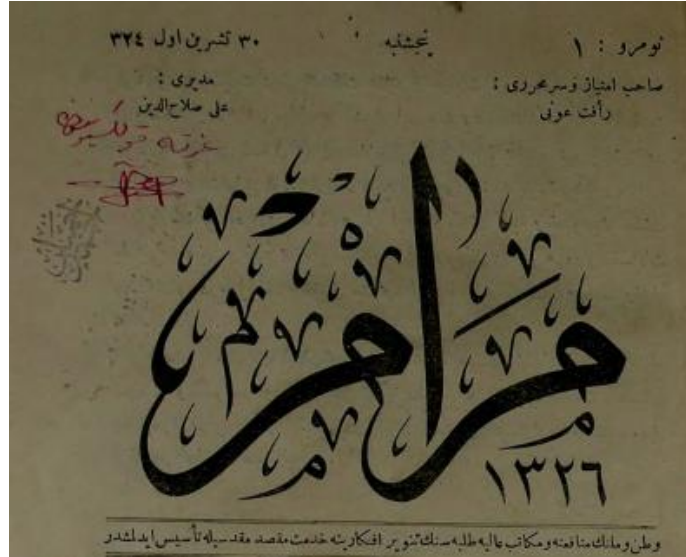 نومرو : ١ پنجشنبه ٣٠ تشرین اول ٣٢٤
صاحب امتیاز وسرمحرری :
رأفت عونی
مدیری :
علی صلاح‌الدین
مرام
١٣٢٦
وطن وملتك منافعنه ومكاتب عالیه طلبه‌سنك تنویر افكارینه خدمت مقصد مقدسیله تأسیس ایدلمشدر